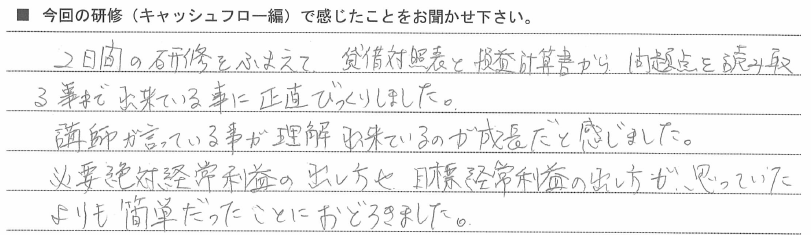 ■ 今回の研修（キャッシュフロー編）で感じたことをお聞かせ下さい。
2日間の研修をふまえて、貸借対照表と損益計算書から問題点を読み取
る事まで出来ている事に正直びっくりしました。
講師が言っている事が理解出来ているのが成長だと感じました。
必要絶対経常利益の出し方や目標経常利益の出し方が、思っていた
よりも簡単だったことにおどろきました。